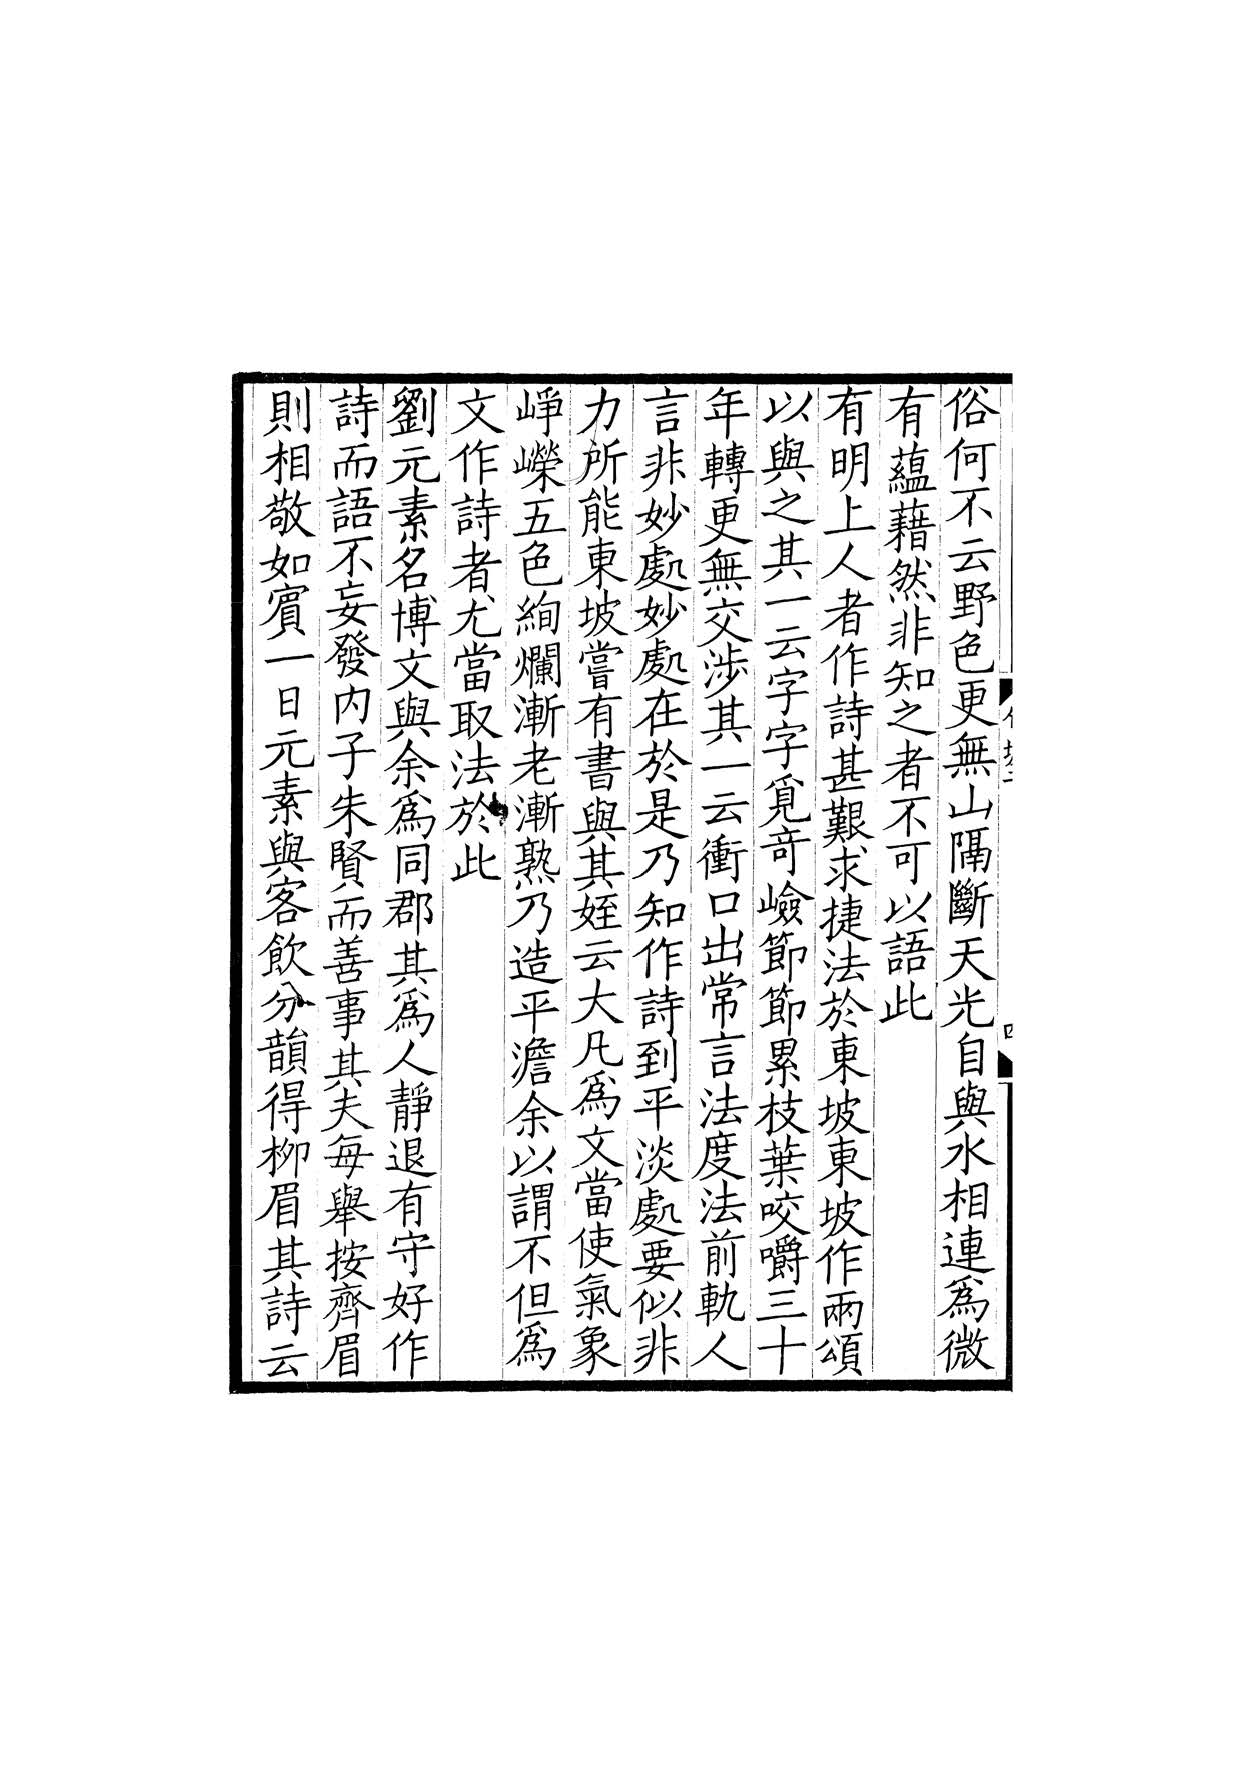 俗何不云野色更無山隔斷天光自與水相連爲微
有蘊藉然非知之者不可以語此
有明上人者作詩甚艱求捷法於東坡東坡作兩頌
以與之其一云字字覓奇嶮節節累枝葉咬嚼三十
年轉更無交涉其一云衝口出常言法度法前軌人
言非妙處妙處在於是乃知作詩到平淡處要似非
力所能東坡嘗有書與其姪云大凡爲文當使氣象
崢嶸五色絢爛漸老漸熟乃造平澹余以謂不但爲
文作詩者尤當取法於此
劉元素名博文與余爲同郡其爲人靜退有守好作
詩而語不妄發内子朱賢而善事其夫每舉按齊眉
則相敬如賓一日元素與客飲分韻得柳眉其詩云